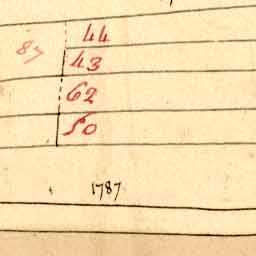 44
87 43
62
50
1787